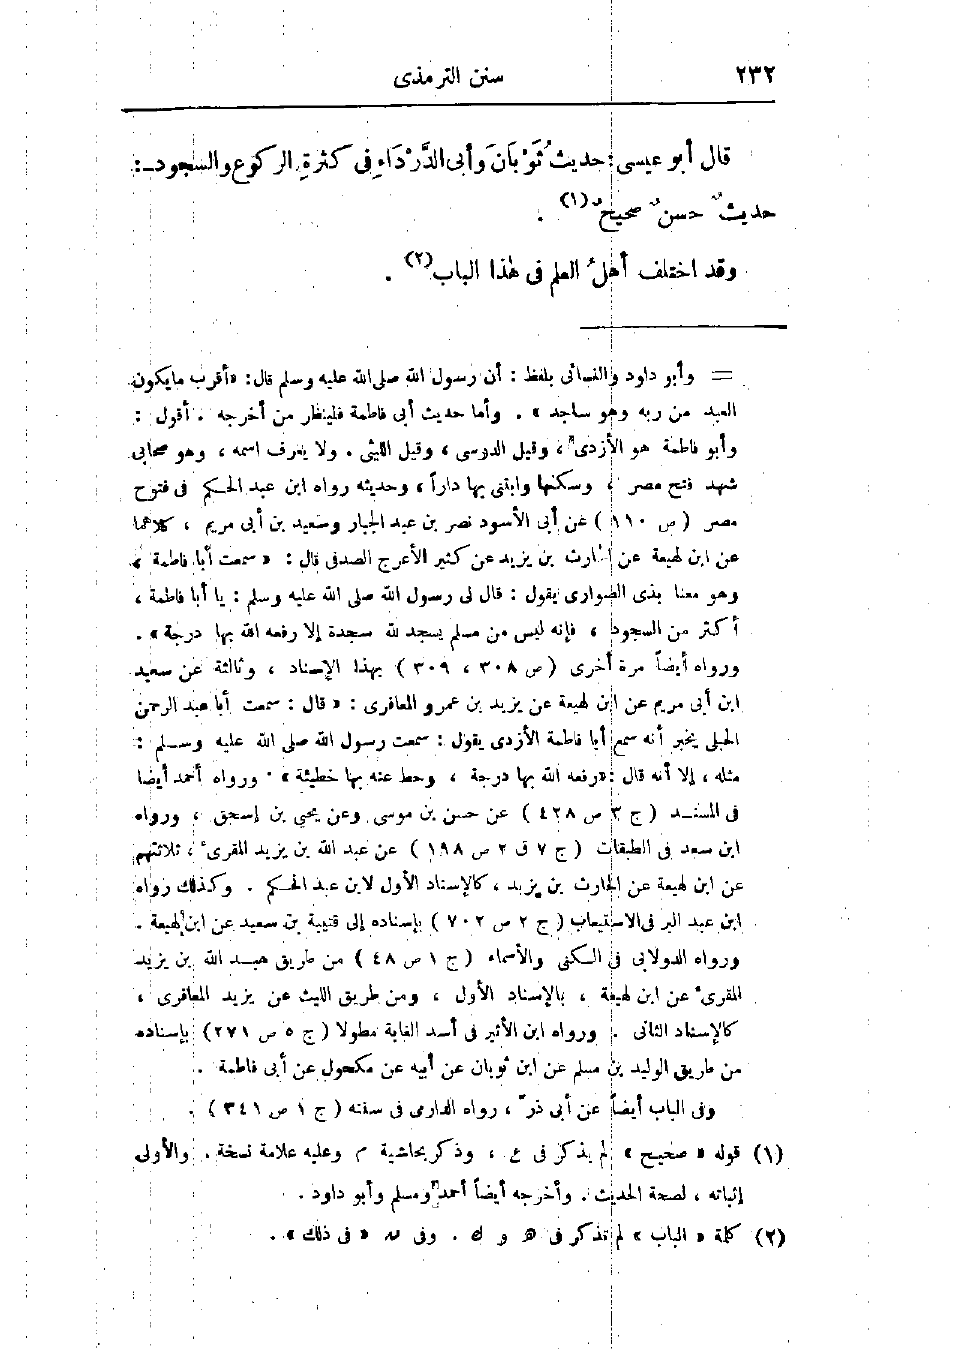 ٢٣٢ سنن الترمذى
قال أبو عيسى: حديثُ ثَوْبَانَ وأبى الدَّرْدَاءِ فى كثرةِ الركوع والسجود:
حديثٌ حسنٌ صحيحٌ (١) .
وقد اختلف أهلُ العلم فى هٰذا الباب (٢) .
= وأبو داود والنسائى بلفظ : أن رسول الله صلى الله عليه وسلم قال: «أقرب مايكون
العبد من ربه وهو ساجد » . وأما حديث أبى فاطمة فلينظر من أخرجه . أقول :
وأبو فاطمة هو الأزدى ، وقيل الدوسى ، وقيل الليثى . ولا يعرف اسمه ، وهو صحابى
شهد فتح مصر ، وسكنها وابتنى بها داراً ، وحديثه رواه ابن عبد الحكم فى فتوح
مصر ( ص ١١٠ ) عن أبى الأسود نصر بن عبد الجبار وسعيد بن أبى مريم ، كلاهما
عن ابن لهيعة عن الحارث بن يزيد عن كثير الأعرج الصدفى قال : « سمعت أبا فاطمة ،
وهو معنا بذى الصوارى يقول : قال لى رسول الله صلى الله عليه وسلم : يا أبا فاطمة ،
أكثر من السجود ، فإنه ليس من مسلم يسجد لله سجدة إلا رفعه الله بها درجة » .
ورواه أيضاً مرة أخرى ( ص ٣٠٨ ، ٣٠٩ ) بهذا الإسناد ، وثالثة عن سعيد
ابن أبى مريم عن ابن لهيعة عن يزيد بن عمرو المعافرى : « قال : سمعت أبا عبد الرحمن
الحبلى يخبر أنه سمع أبا فاطمة الأزدى يقول : سمعت رسول الله صلى الله عليه وسلم :
مثله ، إلا أنه قال : «رفعه الله بها درجة ، وحط عنه بها خطيئة » . ورواه أحمد أيضا
فى المسند ( ج ٣ ص ٤٢٨ ) عن حسن بن موسى وعن يحيى بن إسحق ، ورواه
ابن سعد فى الطبقات ( ج ٧ ق ٢ ص ١٩٨ ) عن عبد الله بن يزيد المقرىء ، ثلاثتهم
عن ابن لهيعة عن الحارث بن يزيد ، كالإسناد الأول لابن عبد الحكم . وكذلك رواه
ابن عبد البر فى الاستيعاب ( ج ٢ ص ٧٠٢ ) بإسناده إلى قتيبة بن سعيد عن ابن لهيعة .
ورواه الدولابى فى الكنى والأسماء ( ج ١ ص ٤٨ ) من طريق عبد الله بن يزيد
المقرىء عن ابن لهيعة ، بالإسناد الأول ، ومن طريق الليث عن يزيد المعافرى ،
كالإسناد الثانى . ورواه ابن الأثير فى أسد الغابة مطولا ( ج ٥ ص ٢٧١ ) بإسناده
من طريق الوليد بن مسلم عن ابن ثوبان عن أبيه عن مكحول عن أبى فاطمة .
وفى الباب أيضاً عن أبى ذرّ ، رواه الدارمى فى سننه ( ج ١ ص ٣٤١ ) .
(١) قوله « صحيح » لم يذكر فى ع ، وذكر بحاشية م وعليه علامة نسخة . والأولى
إثباته ، لصحة الحديث . وأخرجه أيضاً أحمد ومسلم وأبو داود .
(٢) كلمة « الباب » لم تذكر فى ه و ك . وفى « فى ذلك » .